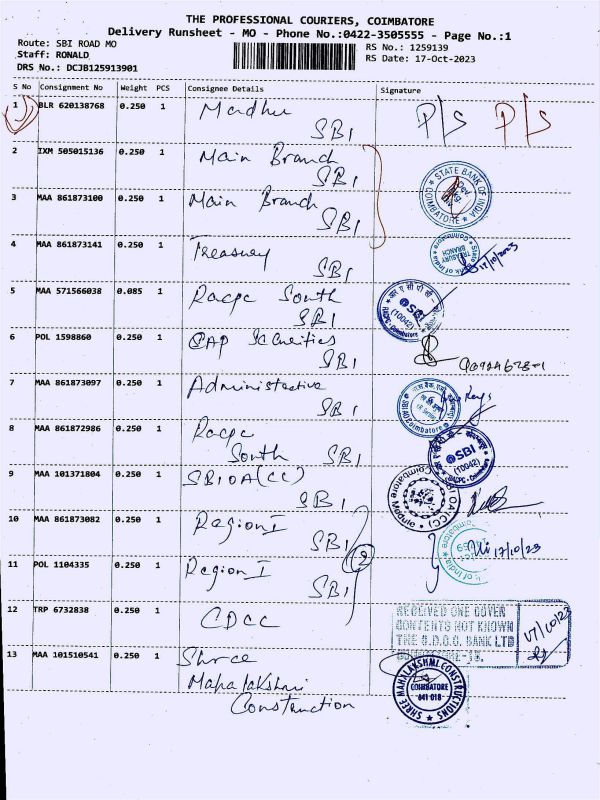 THE PROFESSIONAL COURIERS, COIMBATORE
Delivery Runsheet - MO - Phone No.:0422-3505555 - Page No.:1
Route: SBI ROAD MO
Staff: RONALD
DRS No.: DCJB125913901
RS No.: 1259139
RS Date: 17-Oct-2023
S No Consignment No Weight PCS Consignee Details Signature
1 BLR 620138768 0.250 1 Madhu P/S P/S
SBI
2 IXM 505015136 0.250 1 Main Branch
SBI
STATE BANK OF INDIA
COIMBATORE
3 MAA 861873100 0.250 1 Main Branch
SBI
4 MAA 861873141 0.250 1 Treasury
SBI
TREASURY BRANCH
17/10/2023
5 MAA 571566038 0.085 1 Racpc South
SBI
SBI
(10042)
RACPC - Coimbatore
6 POL 1598860 0.250 1 CAP Securities
SBI
7 MAA 861873097 0.250 1 Administrative
SBI
8 MAA 861872986 0.250 1 Racpc
South SBI
SBI
(10042)
RACPC - Coimbatore
9 MAA 101371804 0.250 1 SBIOA(CC)
SBI
Coimbatore Module
10 MAA 861873082 0.250 1 Region I
SBI
2
17/10/23
11 POL 1104335 0.250 1 Region I
SBI
12 TRP 6732838 0.250 1 CDCC
RECEIVED ONE COVER
CONTENTS NOT KNOWN
THE C.D.C.C. BANK LTD
17/10/23
13 MAA 101510541 0.250 1 Shree
Mahalakshmi
Construction
SHREE MAHALAKSHMI CONSTRUCTIONS
COIMBATORE
641 018